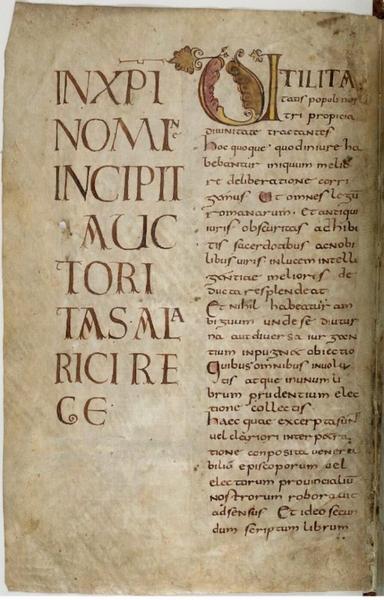 INXPI
NOMIN̄E
INCIPIT
AUC
TORI
TAS AL A
RICI RE
GE
UTILITA
tatis populi nos
tri propicia
divinitate tractantes
hoc quoque quod iniure ha
bebantur iniquum melio
re deliberatione corri
gemus Et omnes legum
romanarum Et antiqui
iuris obscuritas adhibi
tis sacerdotibus ac nobi
libus viris in lucem intelli
gentiae melioris de
ducta resplendeat
Et nihil habeatur am
biguum unde se diutur
na aut diversa iurgan
tium inpugnet obiectio
Quibus omnibus involu
tis atque in unum li
brum prudentium elec
tione collectis
haec quae excerpta sunt
vel clariori interpreta
tione conposita venera
biliū episcoporum vel
electorum provincialiū
nostrorum roboravit
adsensus Et ideo secun
dum scriptum librum